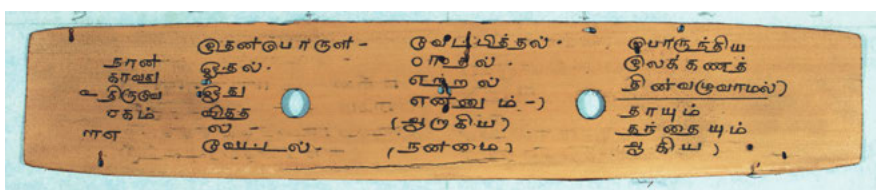 நான்
காவது
சகம்
இதன்பொருள் -
ஓதல்.
ஓது
வித்த
ல் -
வேட்டல் -
வேட்பித்தல் .
ஈதல் .
ஏற்றல்
என்னும் -)
(ஆறாகிய)
(நன்மை)
பொருந்திய
இலக்கணத்
தின்வழுவாமல்)
தாயும்
தந்தையும்
ஆகிய )